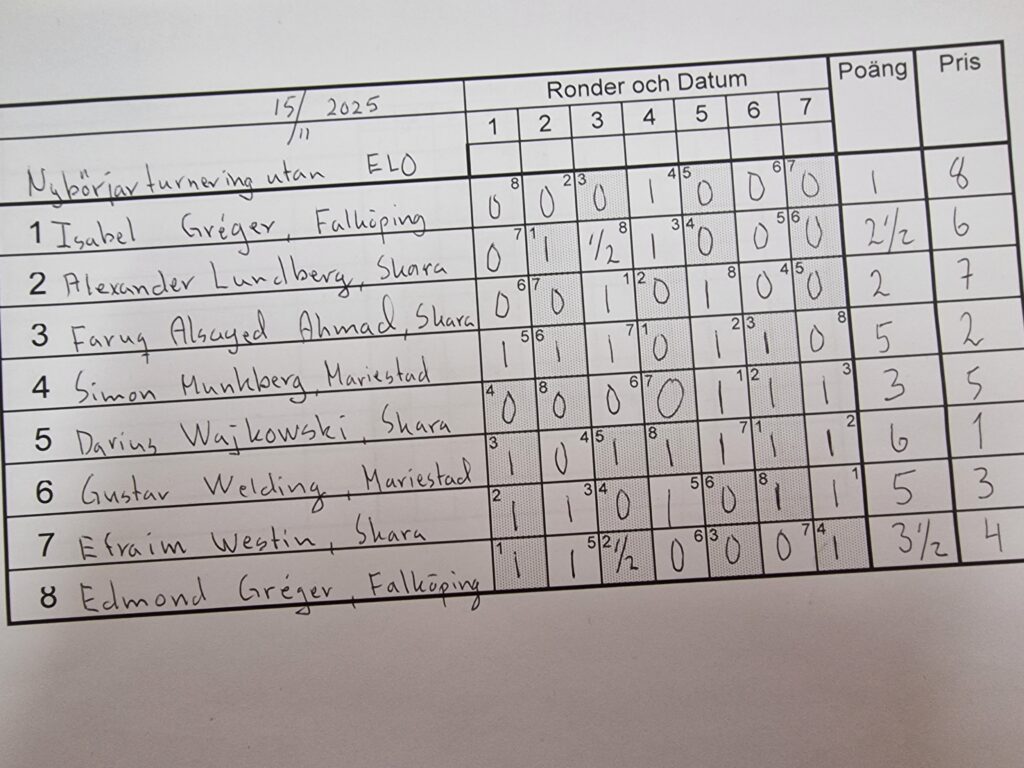 15/11 2025 Ronder och Datum Poäng Pris
1 2 3 4 5 6 7
Nybörjarturnering utan ELO
1 Isabel Gréger, Falköping 0 8 0 2 3 0 1 4 5 0 0 6 7 0 1 8
2 Alexander Lundberg, Skara 0 7 1 1 ½ 8 1 3 4 0 0 5 6 0 2½ 6
3 Faruq Alsayed Ahmad, Skara 0 6 7 0 1 1 2 0 1 8 0 4 5 0 2 7
4 Simon Munkberg, Mariestad 1 5 6 1 1 7 1 0 1 2 3 1 0 8 5 2
5 Darius Wajkowski, Skara 4 0 8 0 0 6 7 0 1 1 2 1 1 3 3 5
6 Gustav Welding, Mariestad 3 1 0 4 5 1 8 1 1 7 1 1 1 2 6 1
7 Efraim Westin, Skara 2 1 1 3 4 0 1 5 6 0 8 1 1 1 5 3
8 Edmond Gréger, Falköping 1 1 1 5 2 ½ 0 6 3 0 0 7 4 1 3½ 4